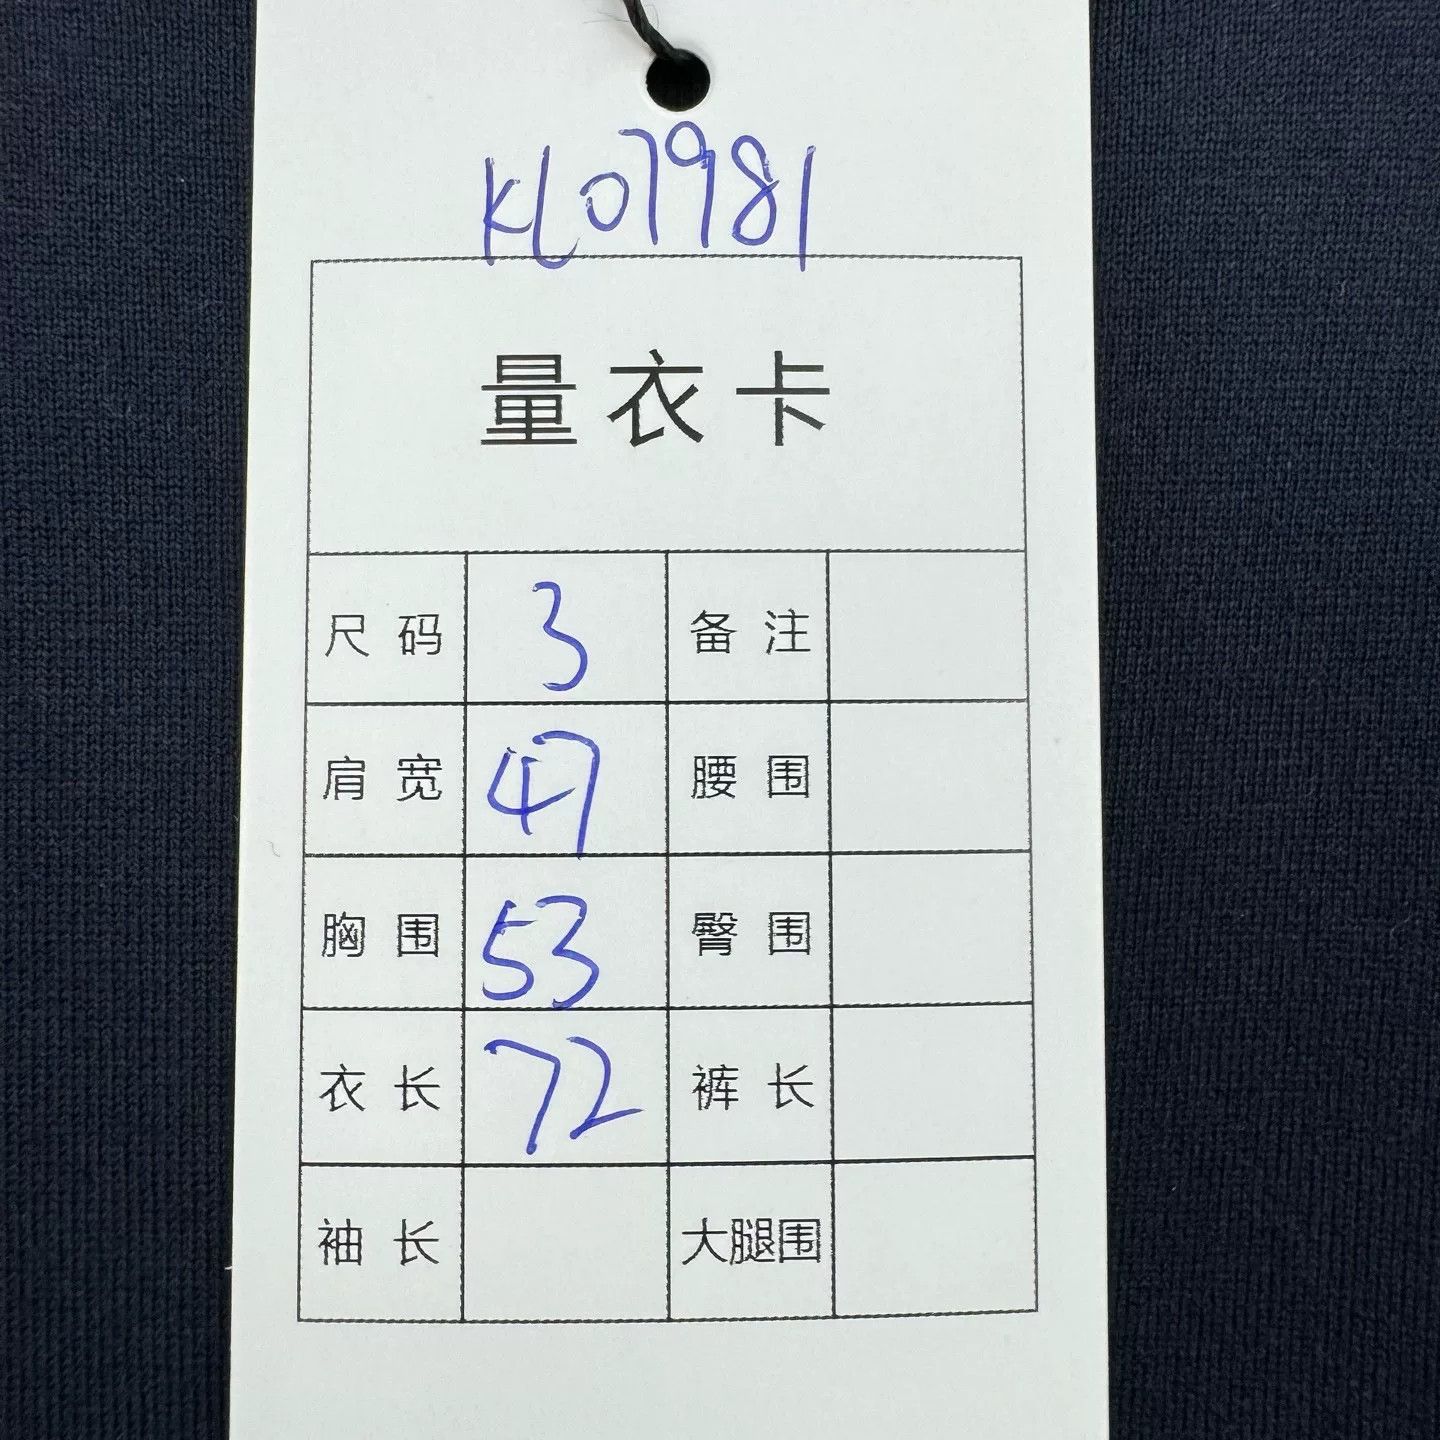 KL07981
量衣卡
尺码 3 备注
肩宽 47 腰围
胸围 53 臀围
衣长 72 裤长
袖长 大腿围